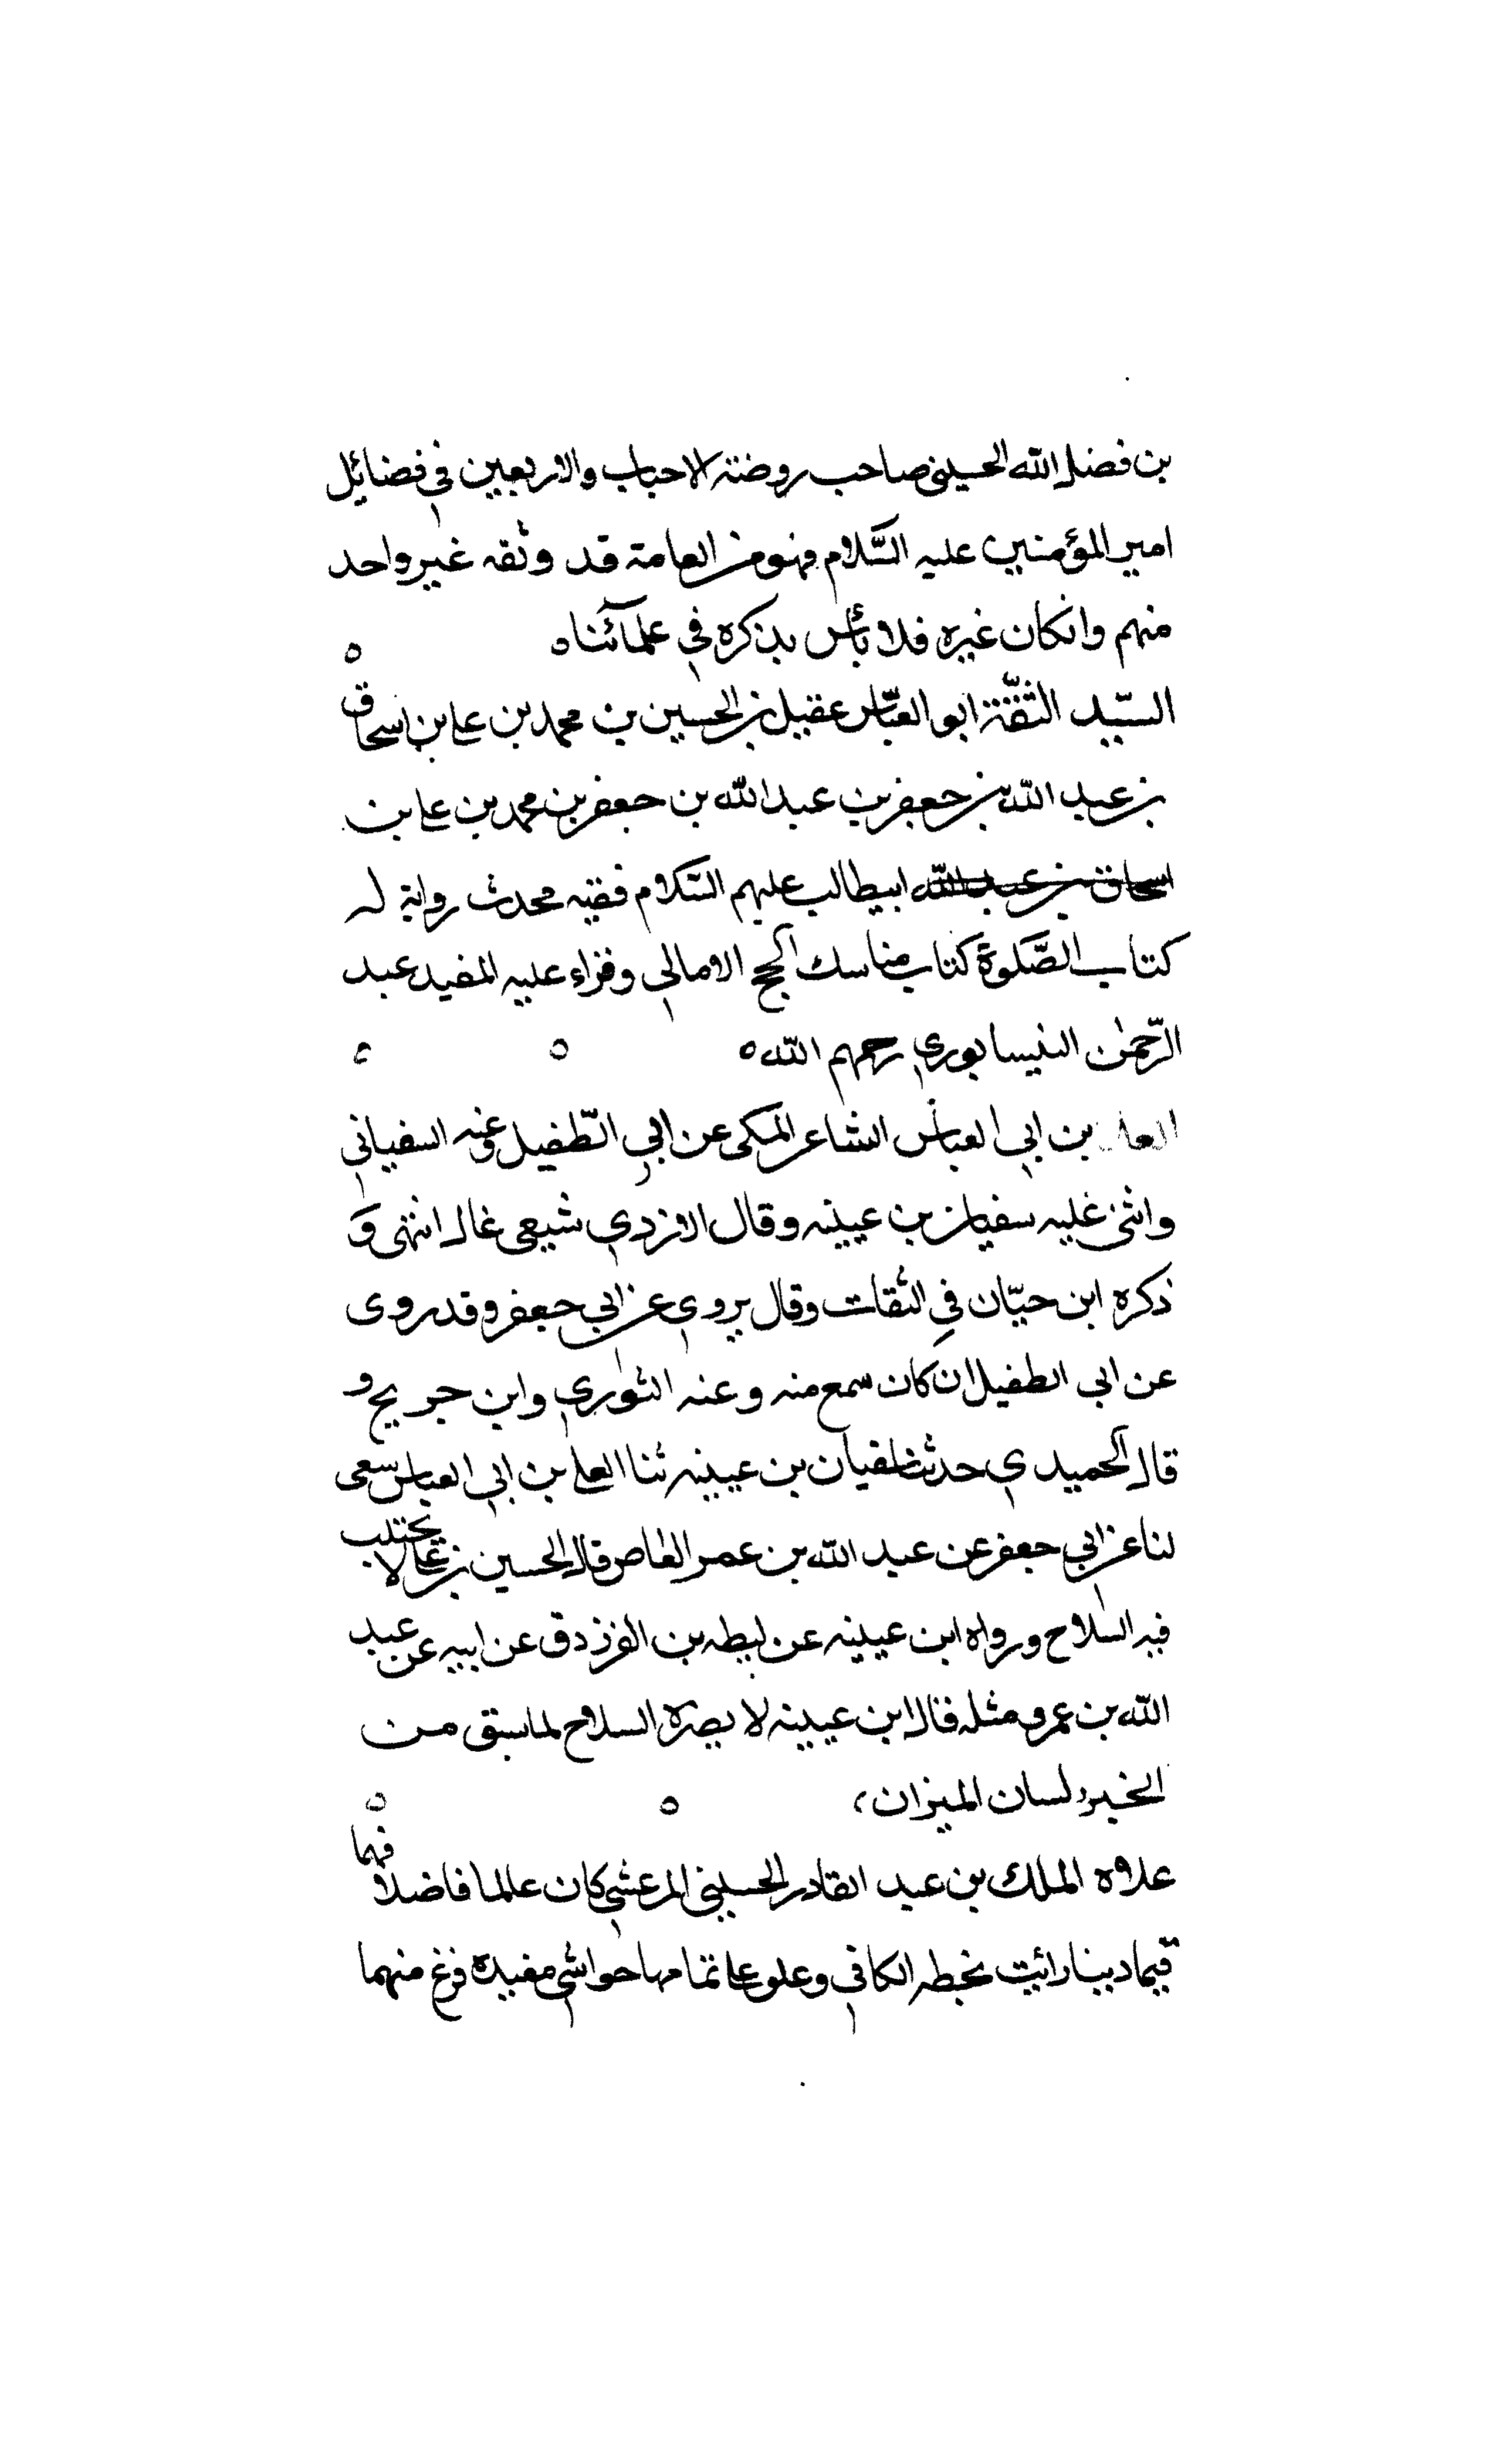 بن فضل الله الحسينی صاحب روضة الاحباب والاربعين في فضائل
امير المؤمنين عليه السَّلام فهو من العامة قد وثقه غير واحد
منهم وانكان غيره فلا بأس بذكره في علمآئنا ه
السيّد الثقّة ابو العبّاس عقيل بن الحسين بن محمد بن علي بن اسحاق
بن عبد الله بن جعفر بن عبد الله بن جعفر بن محمد بن علي بن
اسحاق بن عبد الله ابيطالب عليهم السَّلام فقيه محدث رواية له
كتاب الصَّلوة كتاب مناسك الحج الامالي وقراء عليه المفيد عبد
الرّحمٰن النيسابوري رحمهم الله ه
بن ابي العباس الشاعر المكى عن ابي الطّفيل وعنه السفياني
واثنى عليه سفيان بن عيينه وقال الازدي شيعى غال انتهى وَ
ذكره ابن حبّان في الثقات وقال يروي عن ابي جعفر وقد روى
عن ابى الطفيل ان كان سمع منه وعنه الثوري وابن جريج و
قال الحميدي حدثنا سفيان بن عيينه ثنا العلا بن ابي العباس
لنا عن ابي جعفر عن عبد الله بن عمر العاص قال الحسين بن علي لا
فيه السلاح ورواه ابن عيينه عن لبطه بن الفرزدق عن ابيه عن عبد
الله بن عمرو مثله فقال ابن عيينه لا يضره السلاح لما سبق من
الخير لسان الميزان،
علاء الملك بن عبد القادر الحسيني المرعشي كان عالما فاضلاً فهما
قيّما دينا رائيت بخطه الكافي وعلي تمامها حواشي مفيده فرغ منهما